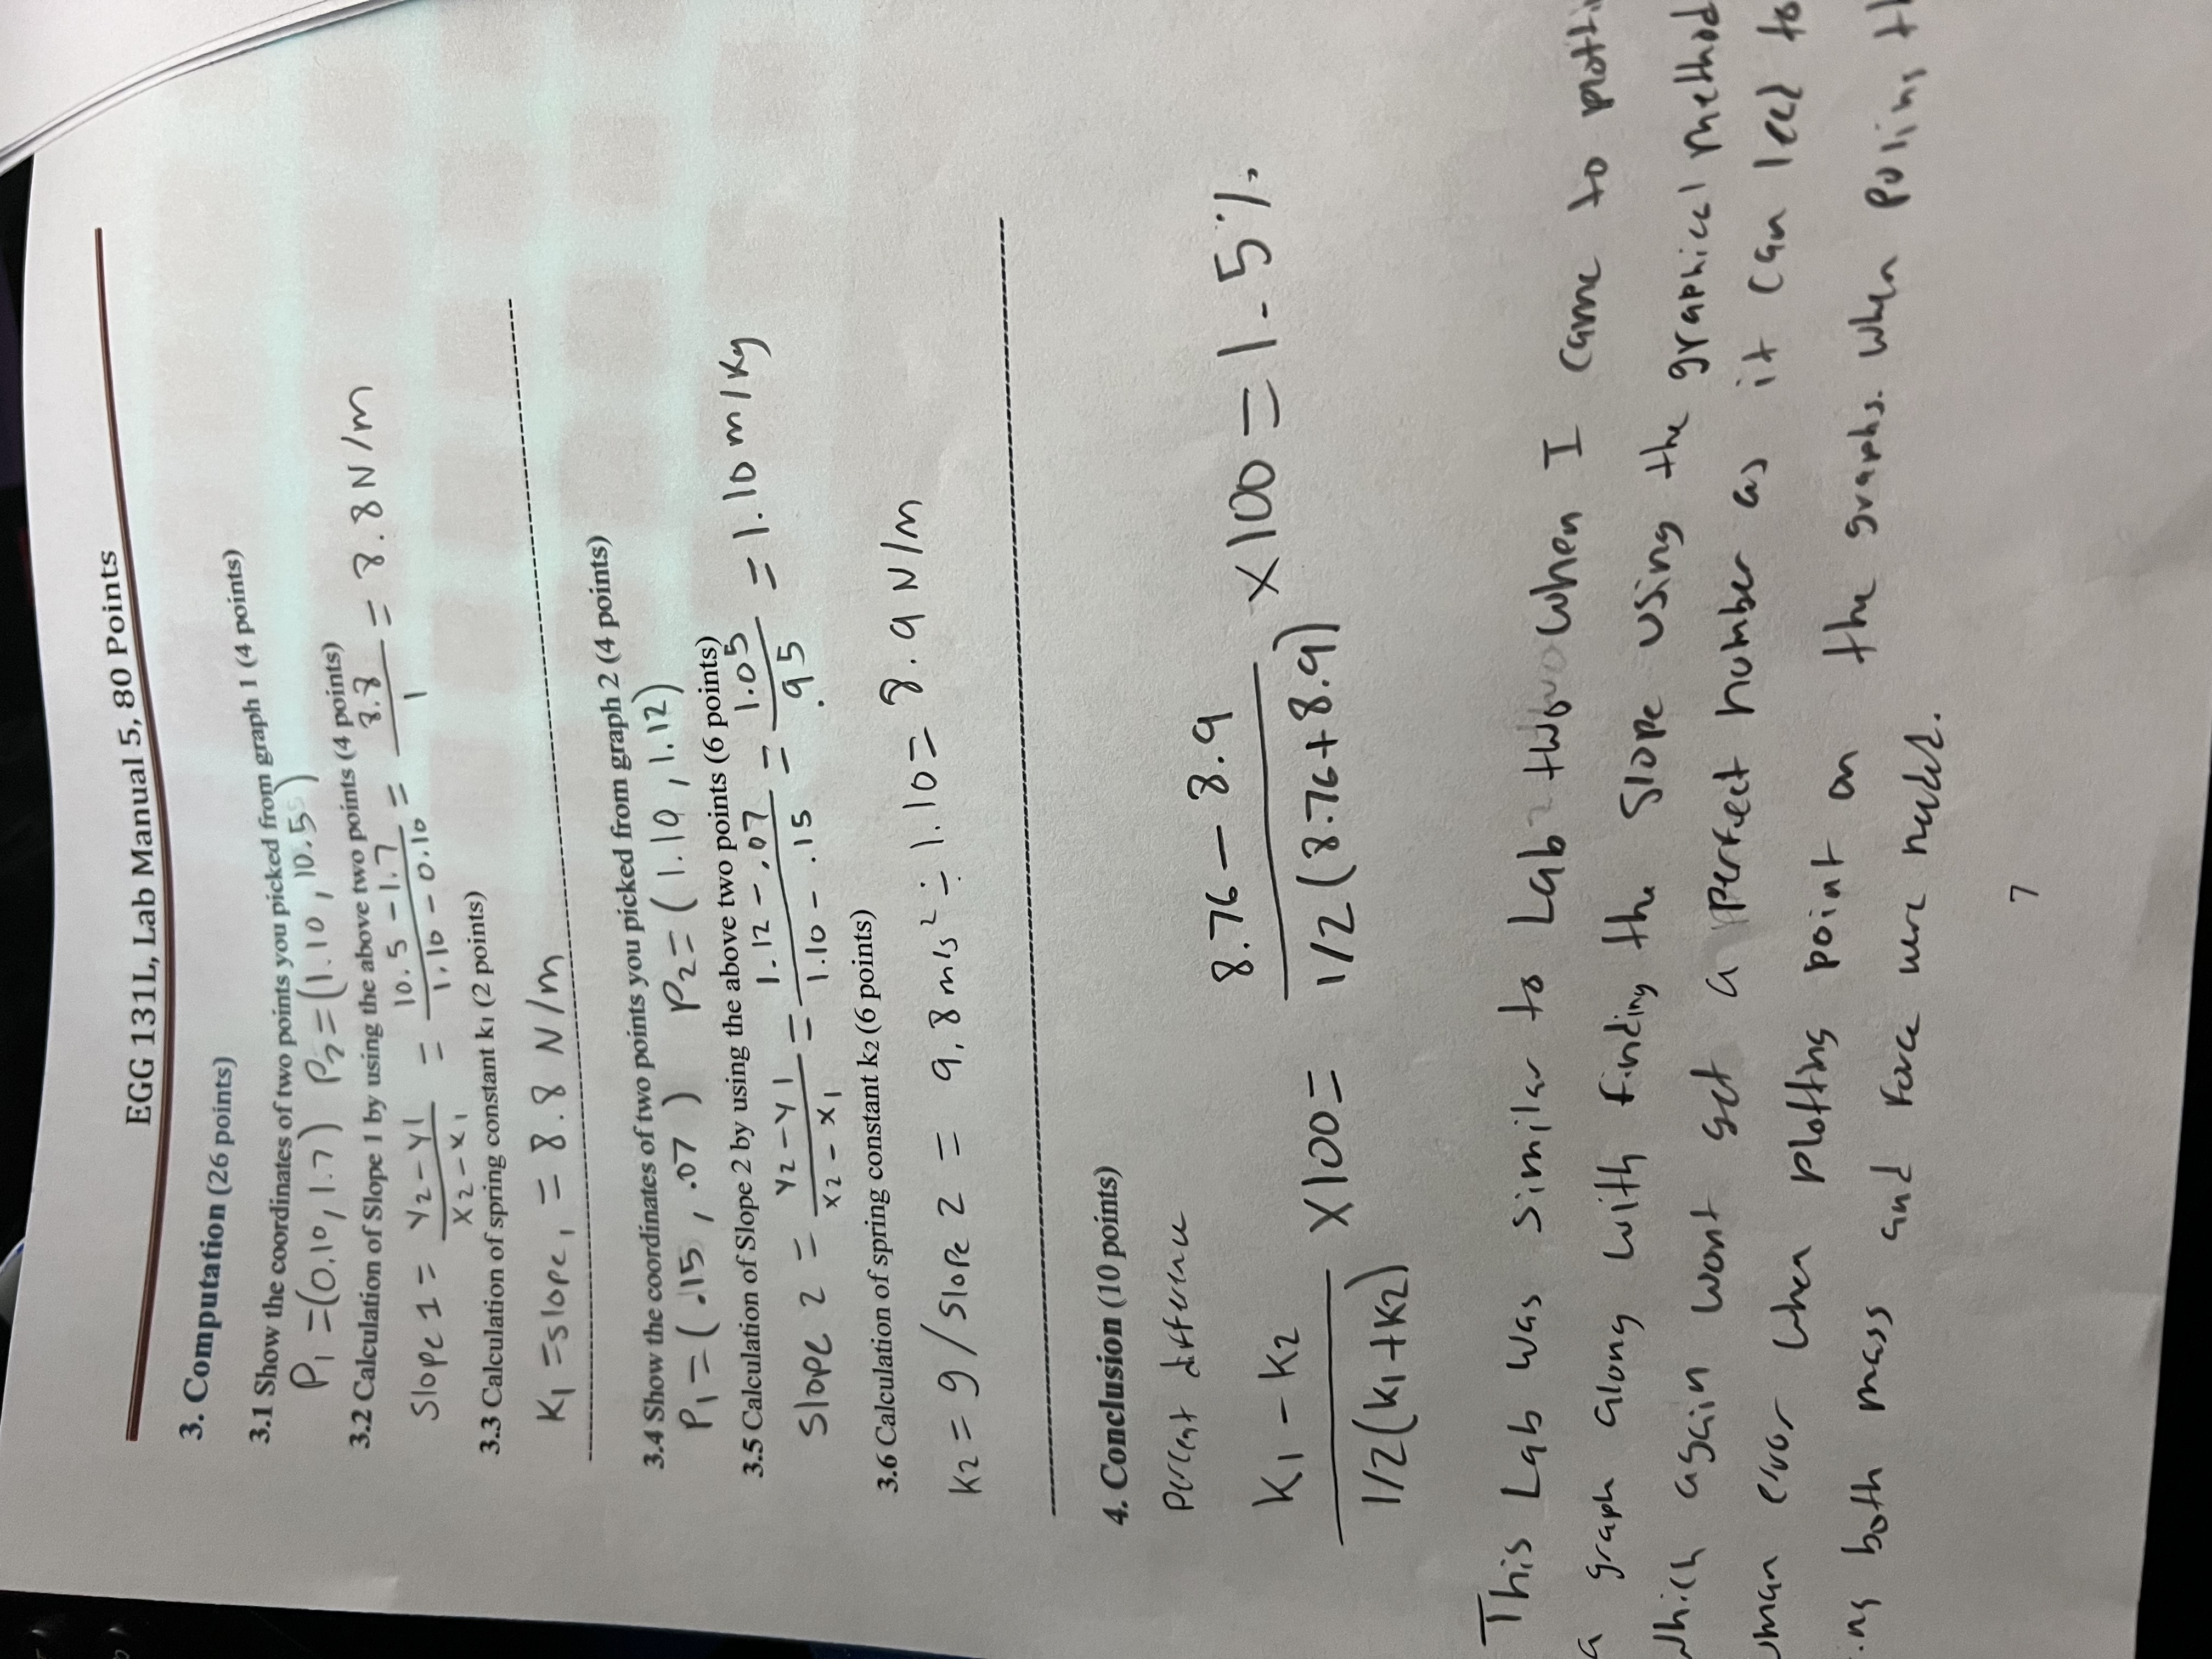 EGG 131L, Lab Manual 5, 80 Points
3. Computation (26 points)
3.1 Show the coordinates of two points you picked from graph 1 (4 points)
P1 = (0.10, 1.7) P2 = (1.10, 10.5)
3.2 Calculation of Slope 1 by using the above two points (4 points)
Slope 1 = Y2 - Y1 / X2 - X1 = 10.5 - 1.7 / 1.10 - 0.10 = 8.8 / 1 = 8.8 N/m
3.3 Calculation of spring constant k1 (2 points)
K1 = slope1 = 8.8 N/m
3.4 Show the coordinates of two points you picked from graph 2 (4 points)
P1 = (.15, .07) P2 = (1.10, 1.12)
3.5 Calculation of Slope 2 by using the above two points (6 points)
Slope 2 = Y2 - Y1 / X2 - X1 = 1.12 - .07 / 1.10 - .15 = 1.05 / .95 = 1.10 m/kg
3.6 Calculation of spring constant k2 (6 points)
K2 = g/slope 2 = 9.8 m/s² ÷ 1.10 = 8.9 N/m
4. Conclusion (10 points)
Percent difference
K1 - K2 / 1/2(K1+K2) X100 = 8.76 - 8.9 / 1/2(8.76+8.9) X100 = 1.5%
This Lab was similar to Lab two when I came to
a graph along with finding the slope using the graphical method
which again wont get a perfect number as it can leed to
error when plotting point on the graphs. When
both mass and force were needed.
7